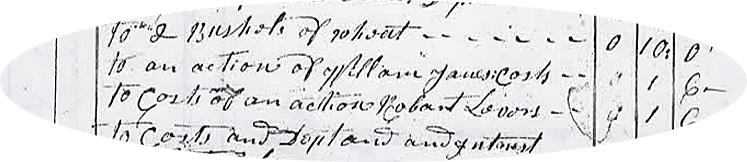 to 2 Bushels of wheat - - - - - - 0 10: 0
to an action of William Janes: Cosh - - 0 1 6 -
to Costs of an action Robart Levors - 0 1 6
to Costs and Dept and and Intrest